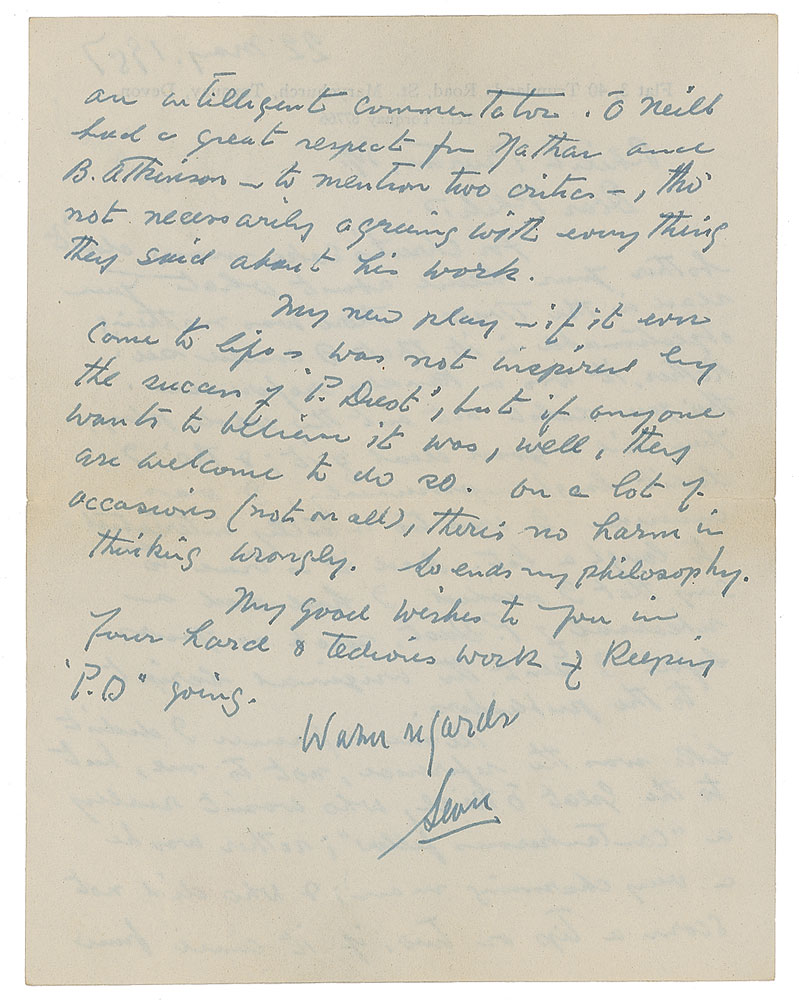 an intelligent commentator. O'Neill
had a great respect for Nathan and
B. Atkinson – to mention two critics –, tho'
not necessarily agreeing with everything
they said about his work.
My new play – if it ever
come to life – was not inspired by
the success of "P. Dust", but if anyone
wants to believe it was, well, they
are welcome to do so. On a lot of
occasions (not on all), there's no harm in
thinking wrongly. So ends my philosophy.
My good wishes to you in
your hard & tedious work of keeping
"P.D" going.
Warm regards
Sean